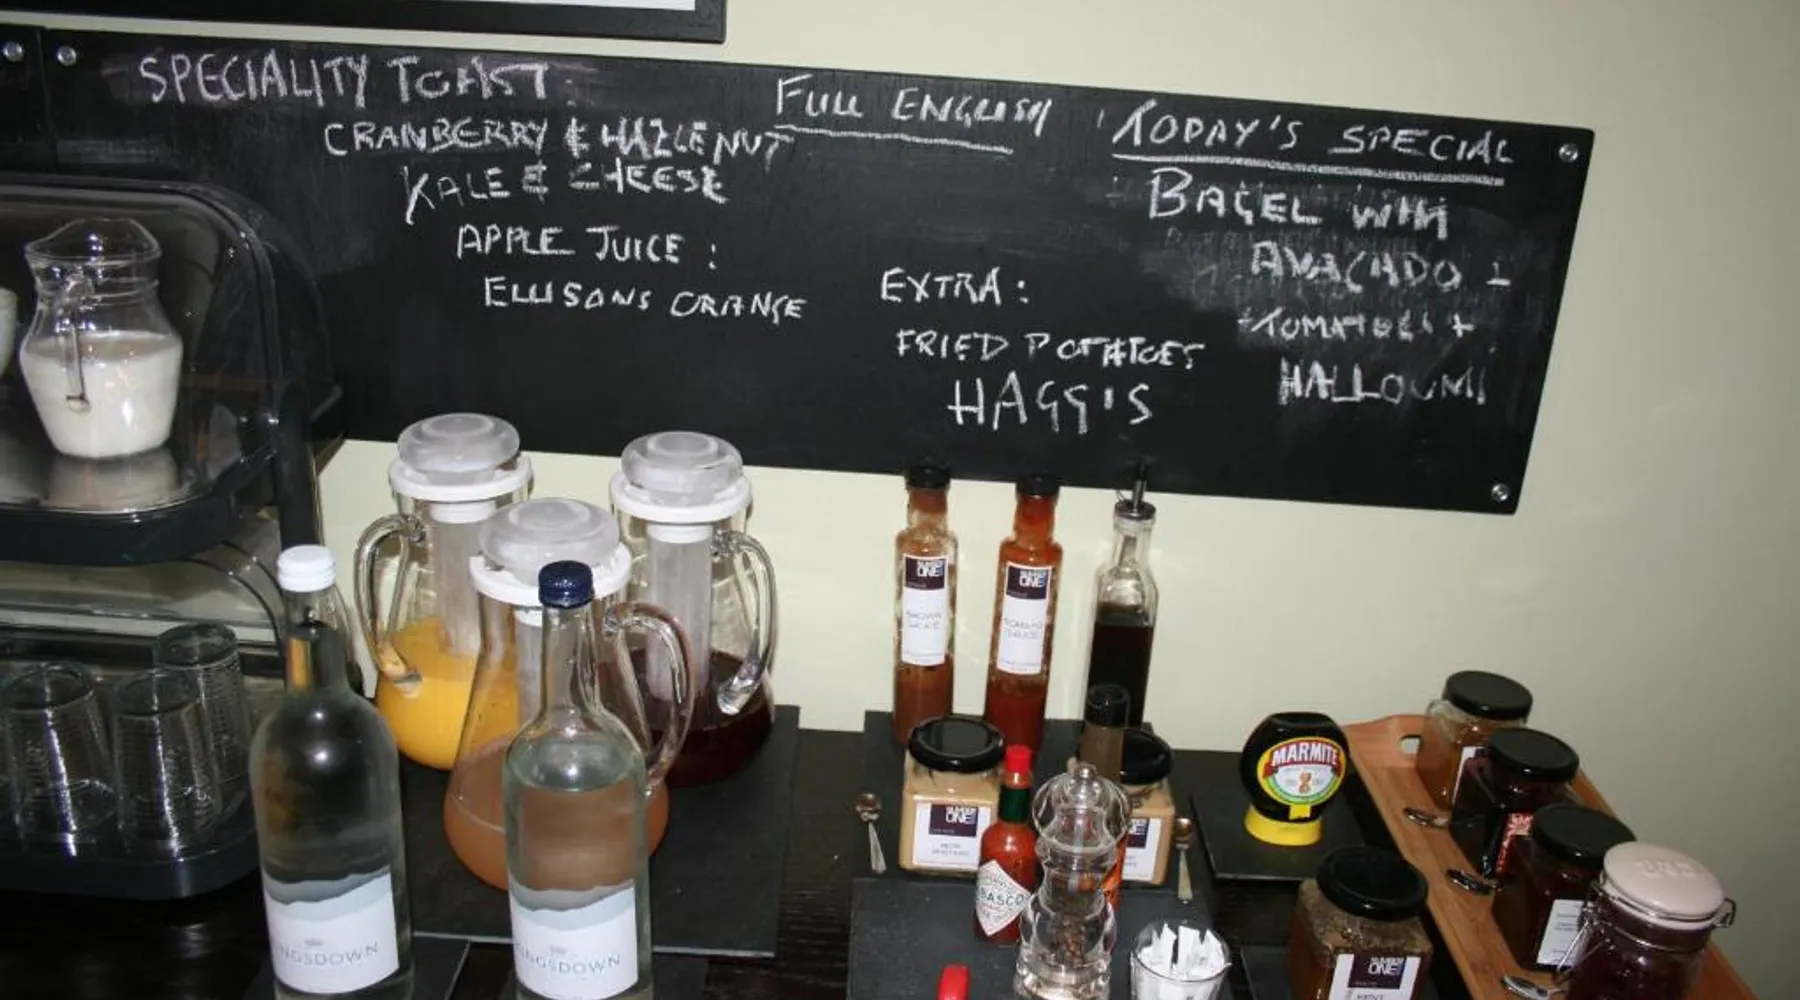 SPECIALITY TOAST:
CRANBERRY & HAZLENUT
KALE & CHEESE
APPLE JUICE :
ELLISONS ORANGE
FULL ENGLISH
EXTRA :
FRIED POTATOES
HAGGIS
TODAY'S SPECIAL
BAGEL WITH
AVACADO +
TOMATOES +
HALLOUMI
NUMBER
ONE
BROWN
SAUCE
ONE
TOMATO
SAUCE
ONE
MARMITE
ABASCO
INGSDOWN
INGSDOWN
ONE